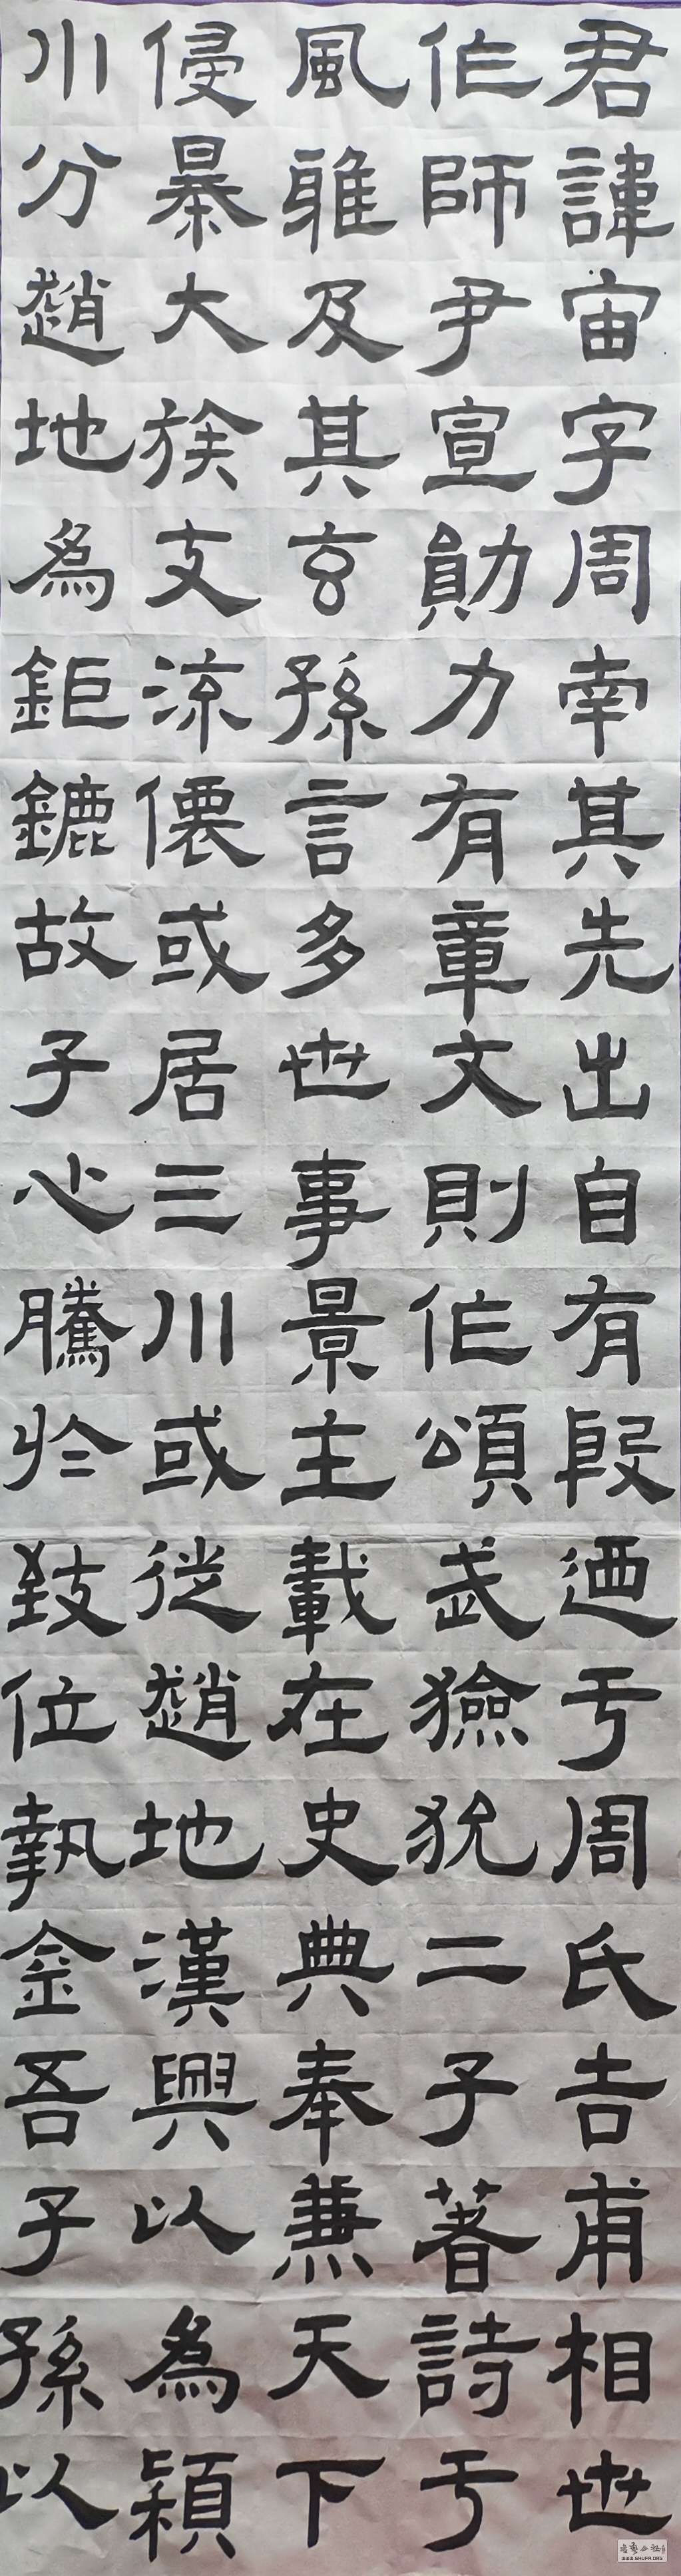 君諱宙字周南其先出自有殷迺亏周氏吉甫相也
作師尹宣勛力有章文則作頌武獫狁二子著詩亏
風雅及其玄孫言多世事景主載在史典奉蕪天下
侵暴大族支流儇或居三川或徙趙地漢興以為穎
川分趙地為鉅鏕故子心騰於致位執金吾子孫以
WWW.SHUFA.ORG